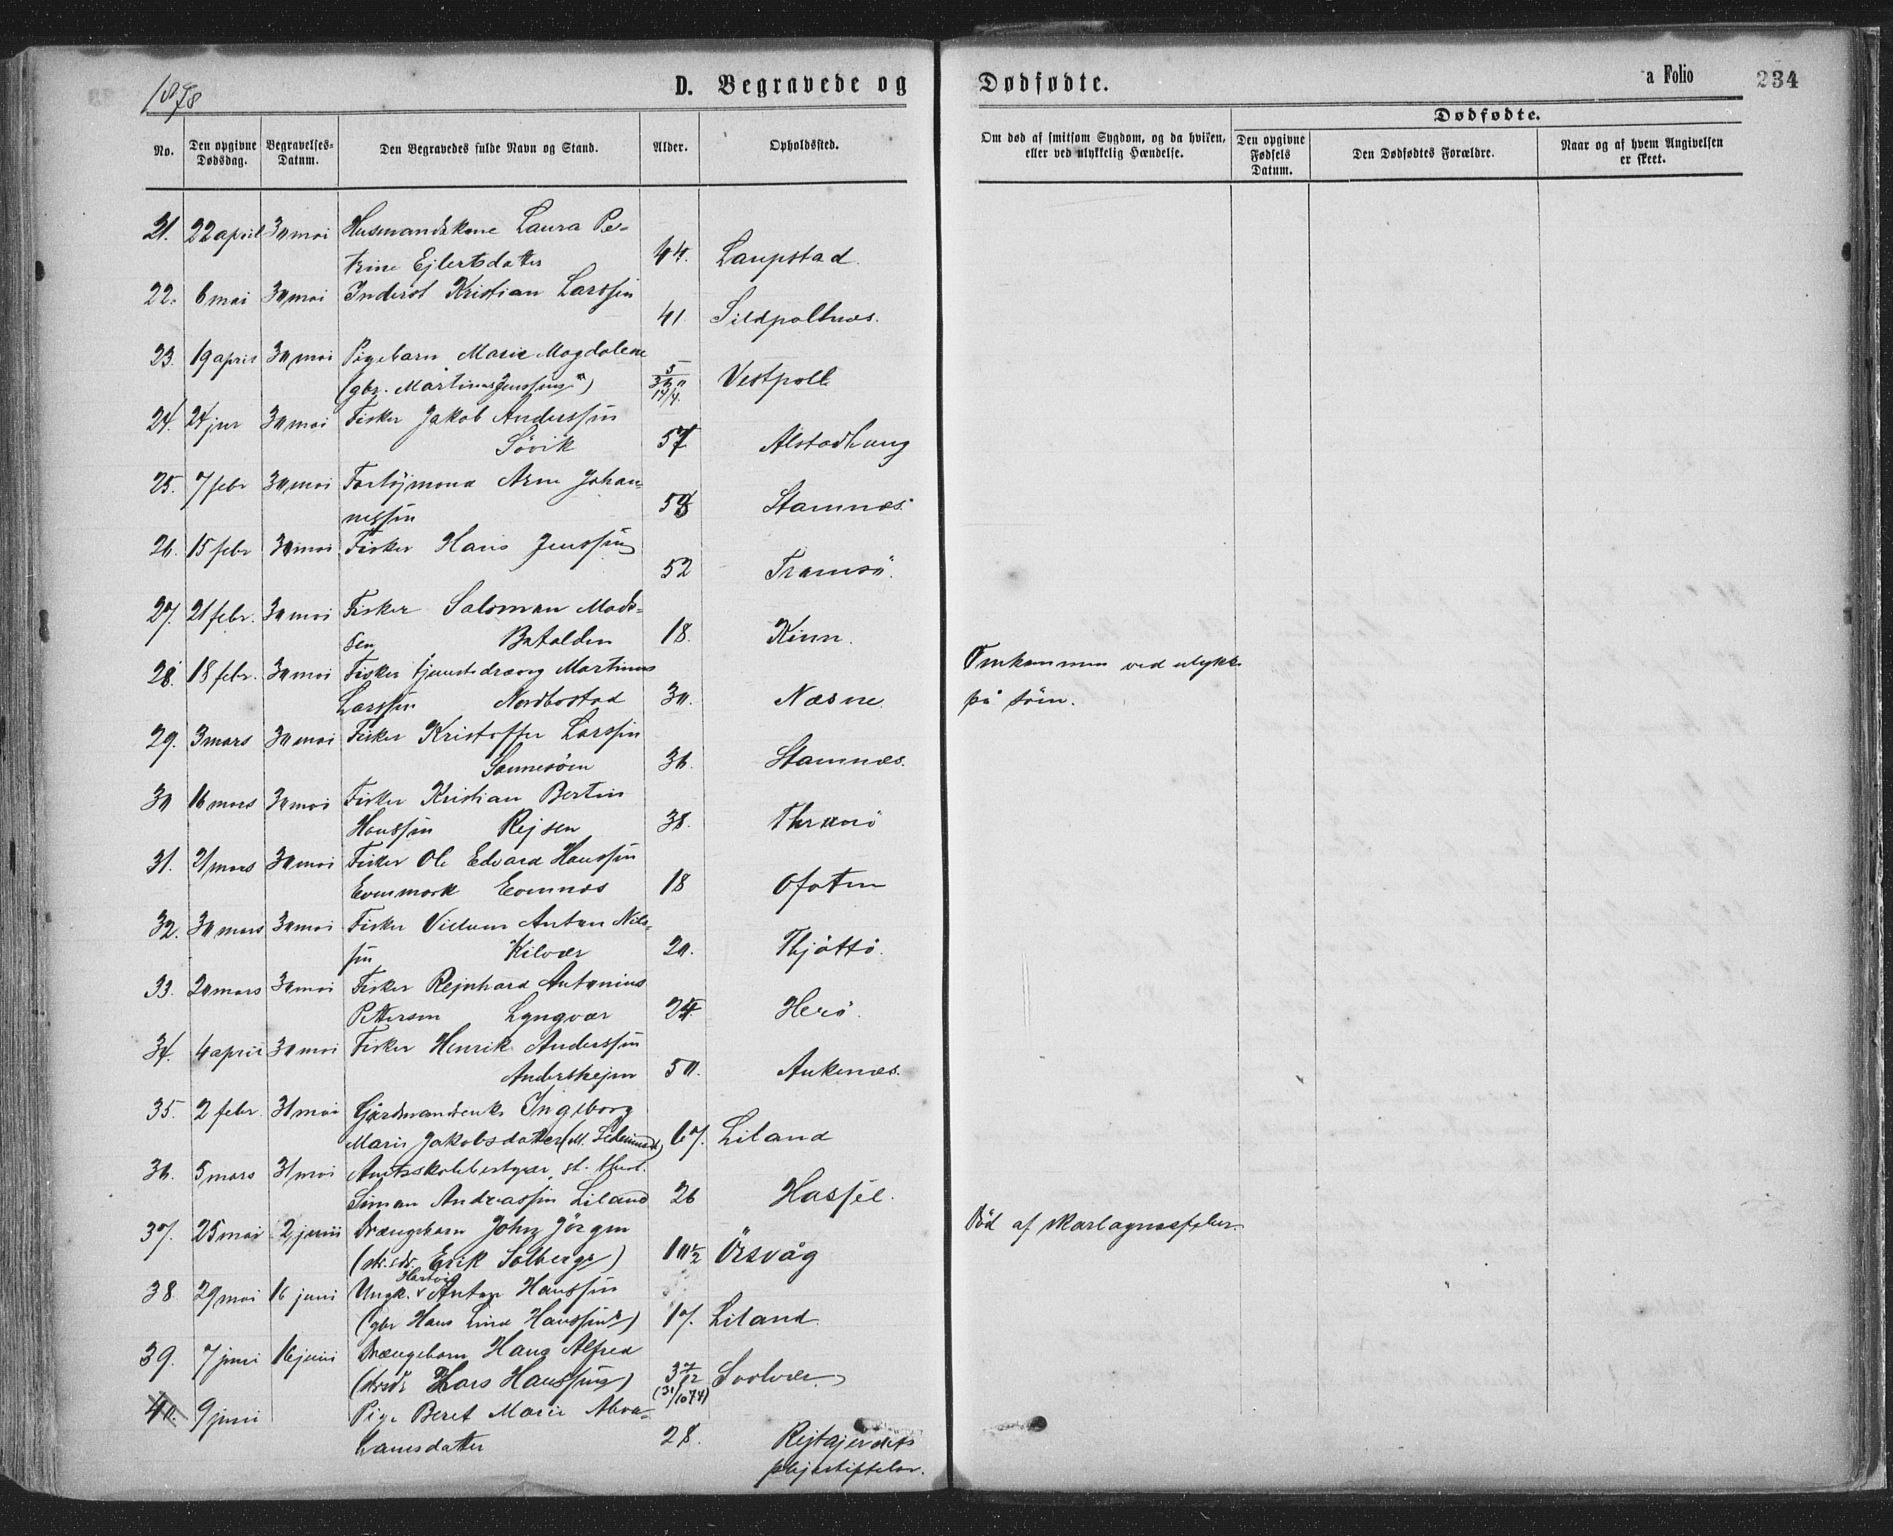 1878
D. Begravede og Dødfødte.
a Folio 234
No. Den opgivne Dødsdag. Begravelses-Datum. Den Begravedes fulde Navn og Stand. Alder. Opholdssted.
Om død af smitsom Sygdom, og da hvilken, eller ved ulykkelig Hændelse.
Dødfødte.
Den opgivne Fødsels Datum. Den Dødfødtes Forældre. Naar og af hvem Angivelsen er skeet.
21. 22 april 30 mai Husmandskone Laura Pe-
trine Ejlertsdatter 44. Laupstad.
22. 6 mai 30 mai Inderst Kristian Larssøn
41. Sildpollnæs.
23. 19 april 30 mai Pigebarn Marie Magdalene
(gbr. Martinus Jenssøns) Vestpoll
24. 24 jan 30 mai Fisker Jakob Anderssøn
Søvik 57 Alstadhaug
25. 7 febr 30 mai Arne Johan-
nessøn Stamnæs.
26. 15 febr 30 mai Fisker Hans Jenssøn
52 Tromsö.
27. 21 febr. 30 mai Fisker Saloman Mads-
sen Batalden 18. Kinn.
28. 18 febr. 30 mai Fisker Martinus
Larssøn Nordbostad 30. Næsne
Omkommen ved ulykke
på söen.
29. 3 mars 30 mai Fisker Kristoffer Larssøn
36. Stamnæs.
30 16 mars 30 mai Fisker Kristian Bertin
Hanssøn Rejsen 38. Thranö
31. 21 mars 30 mai Fisker Ole Edvard Hanssøn
Evenmark Evennæs 18 Ofoten
32. 30 mars 30 mai Fisker Anton Nils-
søn Kilvær 20. Thjöttö.
33. 20 mars 30 mai Fisker Rejnhard Antonius
Pettersen Lyngvær 24 Herö.
34. 4 april 30 mai Fisker Henrik Anderssøn
50. Ankenæs.
35. 2 febr. 31 mai Gårdmandsenke Ingeborg
Marie Jakobsdatter 67. Liland
36. 5 mars 31 mai Amtsskolebestyrer, st. theol.
Simon Andreassøn Liland 26 Hassel.
37. 25 mai 2 juni Drængebarn John Jörgen
(strsdr. Erik Solbergs) 10½ Örsvåg
Död af skarlagensfeber
38. 29 mai 16 juni Ungk. Hartvig Anton Hanssøn
(gbr Hans Lind Hanssøns) 17. Liland.
39. 7 juni 16 juni Drængebarn Hans Alfred
(strsdr Lars Hanssøns) 3 7/12 (31/10 74) Svolvær
40. 9 juni Pige Beret Marie Abra-
hamsdatter 28. Rejtgjerdets
plejestiftelse.